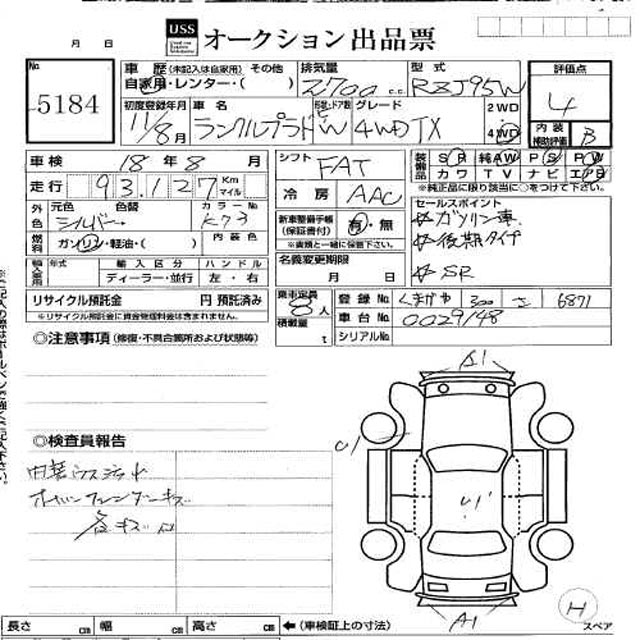 月 日 USS オークション出品票
No 5184
車歴 (未記入は自家用) その他 排気量 型式 評価点
自家用・レンター・( ) 2700 c.c. RZJ95W 4
初度登録年月 車名 グレード 2WD
11/8月 ランクルプラド W 4WD TX 4WD 内装 補助評価 B
車検 18年8月 シフト FAT 装備品 SR 純AW PS PW
走行 93,127 Km マイル 冷房 AAC カワ TV ナビ エアB
※純正品に限り該当に○をつけて下さい。
外色 元色 色替 カラーNo 新車整備手帳 (保証書付) 有・無 セールスポイント
シルバー K73 ※書類と一緒に保管下さい。 ☆ガソリン車
燃料 ガソリン・軽油・( ) 内装色 名義変更期限 ☆後期タイプ
年式 輸入区分 ハンドル 月 日 ☆SR
ディーラー・並行 左・右
リサイクル預託金 円 預託済み 乗車定員 8人 登録No くまがや 300 さ 6871
※リサイクル預託金に資金管理料金は含まれません。 積載量 t 車台No 0029148
シリアルNo
◎注意事項 (修復・不具合箇所および状態等)
A1
◎検査員報告
U1
内装ウスヨゴレ
U1
各キズ凹
A1
H
長さ cm 幅 cm 高さ cm ←(車検証上の寸法) スペア